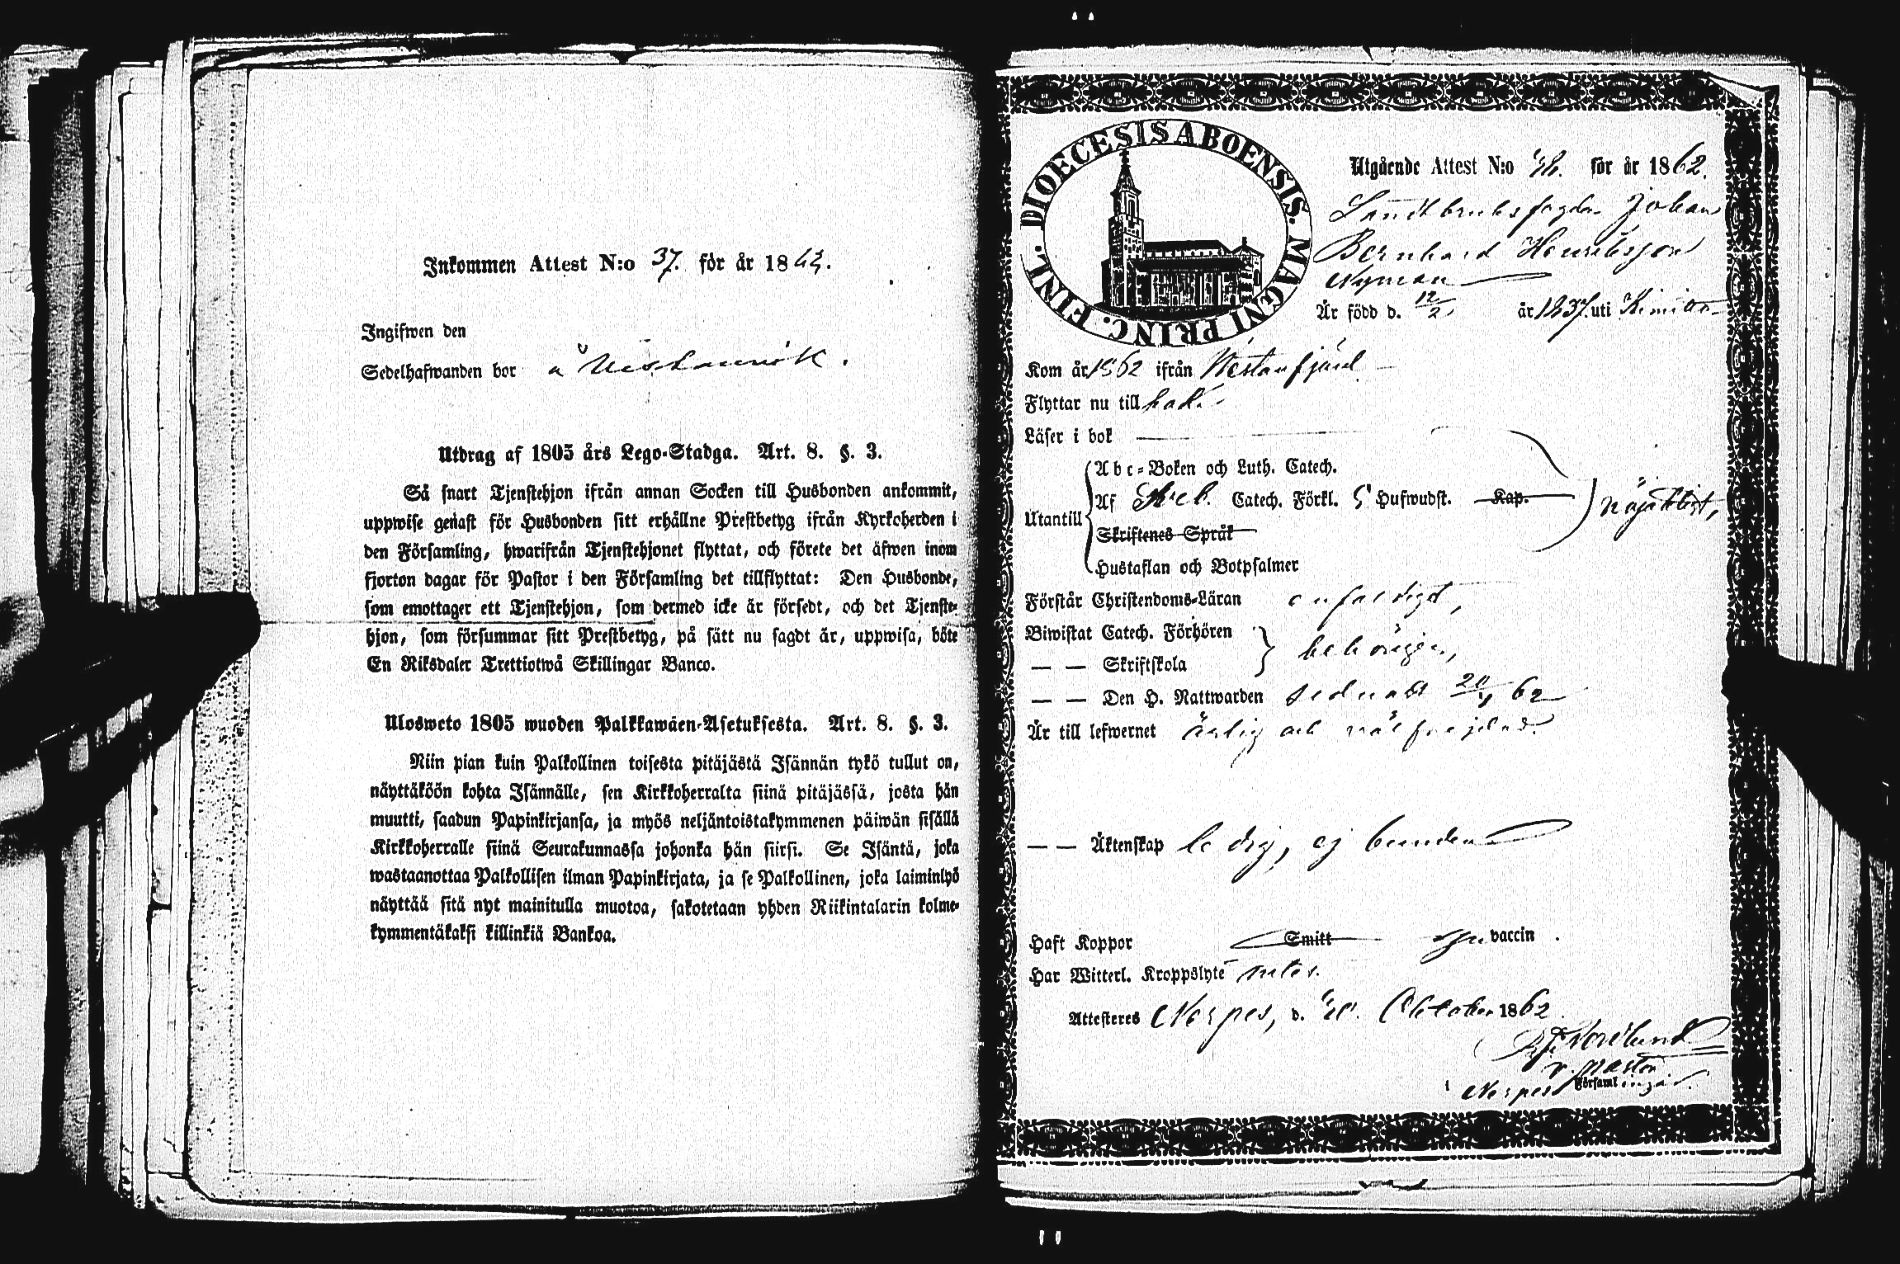 Inkommen Attest N:o 37. för år 1862.
Ingifwen den
Sedelhafwanden bor å
Utdrag af 1805 års Lego-Stadga. Art. 8. §. 3.
Så snart Tjenstehjon ifrån annan Socken till Husbonden ankommit,
uppwise genast för Husbonden sitt erhållne Prestbetyg ifrån Kyrkoherden i
den Församling, hwarifrån Tjenstehjonet flyttat, och förete det äfwen inom
fjorton dagar för Pastor i den Församling det tillflyttat: Den Husbonde,
som emottager ett Tjenstehjon, som dermed icke är försedt, och det Tjenste-
hjon, som försummar sitt Prestbetyg, på sätt nu sagdt är, uppwisa, böte
En Riksdaler Trettiotwå Skillingar Banco.
Ulosweto 1805 wuoden Palkkawäen-Asetuksesta. Art. 8. §. 3.
Niin pian kuin Palkollinen toisesta pitäjästä Isännän tykö tullut on,
näyttäköön kohta Isännälle, sen Kirkkoherralta siinä pitäjässä, josta hän
muutti, saadun Papinkirjansa, ja myös neljäntoistakymmenen päiwän sisällä
Kirkkoherralle siinä Seurakunnassa johonka hän siirsi. Se Isäntä, joka
wastaanottaa Palkollisen ilman Papinkirjata, ja se Palkollinen, joka laiminlyö
näyttää sitä nyt mainitulla muotoa, sakotetaan yhden Riikintalarin kolme-
kymmentäkaksi killinkiä Bankoa.
DIOECESIS ABOENSIS. MAGNI PRINC. FINL.
Utgående Attest N:o 48. för år 1862.
Landtbruksfogden Johan
Bernhard Henriksson
Nyman
Är född d. 12/2 år 1837. uti Kimito
Kom år 1862 ifrån Westanfjärd
Flyttar nu till
Läser i bok
Abc-Boken och Luth. Catech.
Utantill Af Sveb. Catech. Förkl. 5 Hufwudst. Kap. nöjaktligt,
Skriftenes Språk
Hustaflan och Botpsalmer
Förstår Christendoms-Läran enfaldigt,
Biwistat Catech. Förhören
— — Skriftskola behörigen,
— — Den H. Nattwarden sednast 20/4 62
Är till lefwernet ärlig och välfrejdad.
— — Äktenskap ledig, ej bunden
Haft Koppor Smitt gn vaccin.
Har Witterl. Kroppslyte intet.
Attesteres Nerpes, d. 20. October 1862
Nordlund
v. Pastor
Nerpes Församlingar.